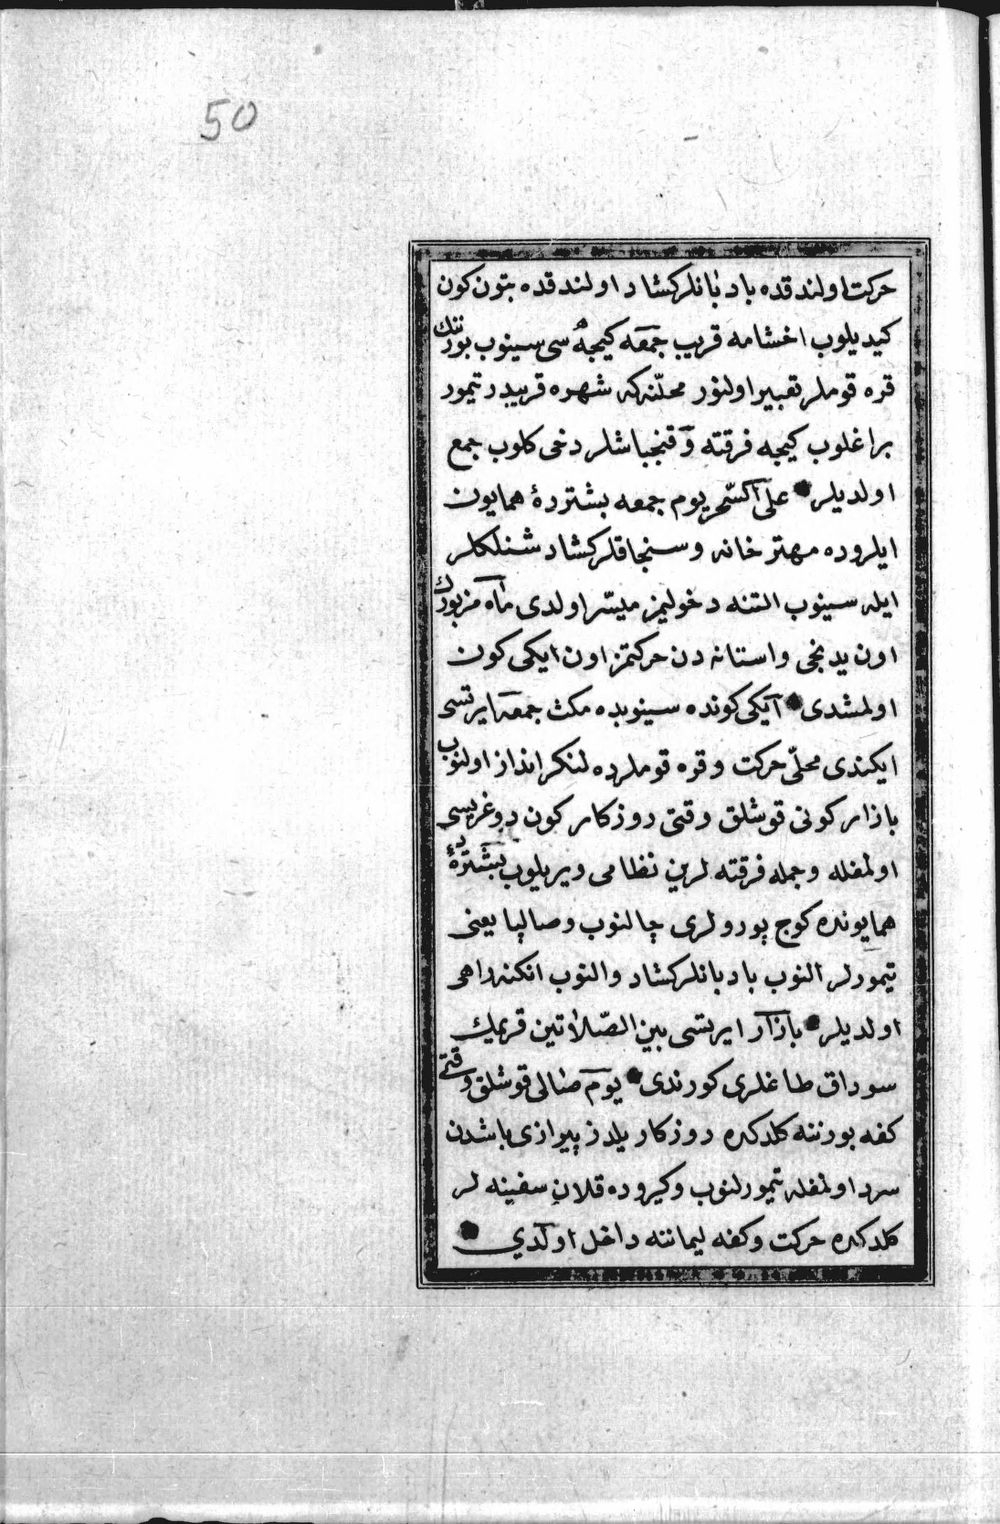 50
حركت اولندقده بادبانلر كشاد اولندقده بتون كون
كيديلوب اخشامه قريب جمعه كيجه‌سی سينوب بورننك
قره قوملر تعبير اولنور محلنه كه شهره قريبدر تيمور
براغلوب كيجه فرقته و قنجباشلر دخی كلوب جمع
اولديلر علی السحر يوم جمعه بشترده همايون
ايلروده مهتر خانه و سنجاقلر كشاد شنلكلر
ايله سينوب التنه دخوليمز ميسّر اولدی ماه مزبورك
اون يدنجی و استانه دن حركتمز اون ايكی كون
اولمشدی ايكی كونده سينوبده مكث جمعه ايرتسی
ايكندی محلّی حركت و قره قوملرده لنكر انداز اولنوب
بازار كونی قوشلق وقتی روزكار كون دوغريسی
اولمغله و جمله فرقته لرين نظامی ويريلوب بشترده
همايونده كوچ بورولری چالنوب و صالپا يعنی
تيمورلر النوب بادبانلر كشاد و النوب انكنه راهی
اولديلر بازار ايرتسی بين الصّلاتين قريمك
سوداق طاغلری كورندی يوم صالی قوشلق وقتی
كفه بورننه كلدكده روزكار يلدز پيرازی باشدن
سرد اولمغله تيمورلنوب و كيروده قلان سفينه لر
كلدكده حركت و كفه ليماننه داخل اولدي